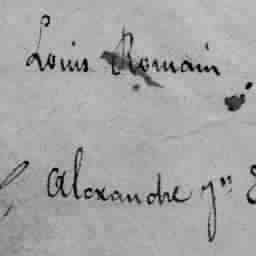 Louis Romain
Alexandre Jn